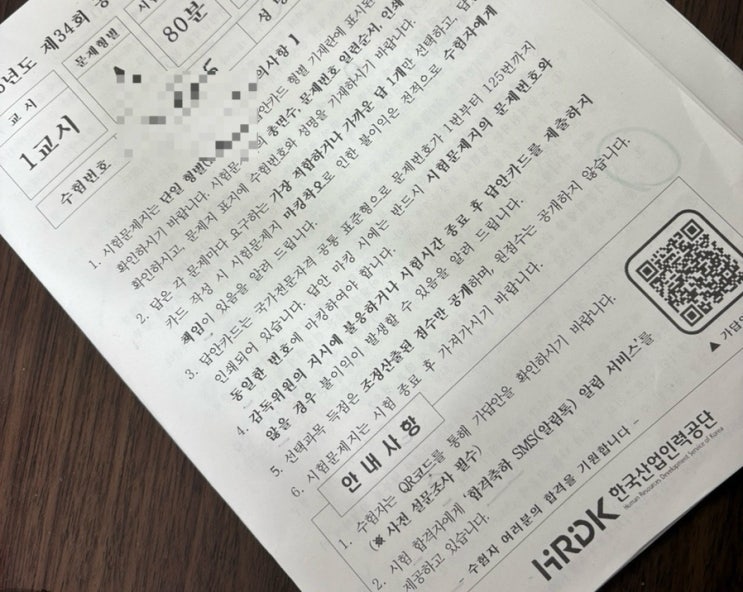 년도 제34회 공
문제형별
80분
성 명
교 시
1교시
수험번호
의사항 】
1. 시험문제지는 단일 형별(
답안카드 형별 기재란에 표시된
확인하시기 바랍니다. 시험문
의 총면수, 문제번호 일련순서, 인쇄
확인하시고, 문제지 표지에 수험번호와 성명을 기재하시기 바랍니다.
2. 답은 각 문제마다 요구하는 가장 적합하거나 가까운 답 1개만 선택하고, 답
카드 작성 시 시험문제지 마킹착오로 인한 불이익은 전적으로 수험자에게
책임이 있음을 알려 드립니다.
3. 답안카드는 국가전문자격 공통 표준형으로 문제번호가 1번부터 125번까지
인쇄되어 있습니다. 답안 마킹 시에는 반드시 시험문제지의 문제번호와
동일한 번호에 마킹하여야 합니다.
4. 감독위원의 지시에 불응하거나 시험시간 종료 후 답안카드를 제출하지
않을 경우 불이익이 발생할 수 있음을 알려 드립니다.
5. 선택과목 득점은 조정산출된 점수만 공개하며, 원점수는 공개하지 않습니다.
6. 시험문제지는 시험 종료 후 가져가시기 바랍니다.
▲ 가답안
안 내 사 항
1. 수험자는 QR코드를 통해 가답안을 확인하시기 바랍니다.
(※ 사전 설문조사 필수)
2. 시험 합격자에게 '합격축하 SMS(알림톡) 알림 서비스'를
제공하고 있습니다.
- 수험자 여러분의 합격을 기원합니다 -
HRDK 한국산업인력공단
Human Resources Development Service of Korea